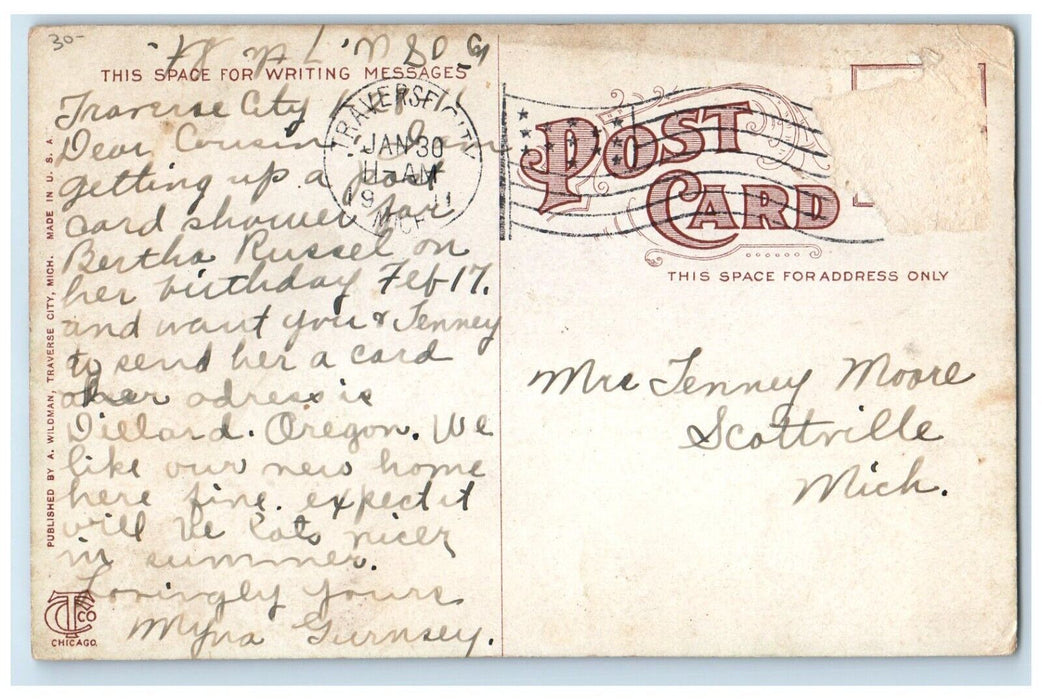 30-
THIS SPACE FOR WRITING MESSAGES
Traverse City
Dear Cousin
getting up a post
card shower for
Bertha Russel on
her birthday Feb 17.
and want you & Tenney
to send her a card
her adress is
Dillard. Oregon. We
like our new home
here fine. expect it
will be lots nicer
in summer.
Lovingly yours
Myna Gurnsey.
PUBLISHED BY A. WILDMAN, TRAVERSE CITY, MICH. MADE IN U. S. A.
CTCO
CHICAGO.
TRAVERSE CITY
JAN 30
11-AM
1911
MICH
POST
CARD
THIS SPACE FOR ADDRESS ONLY
Mrs Tenney Moore
Scottville
Mich.